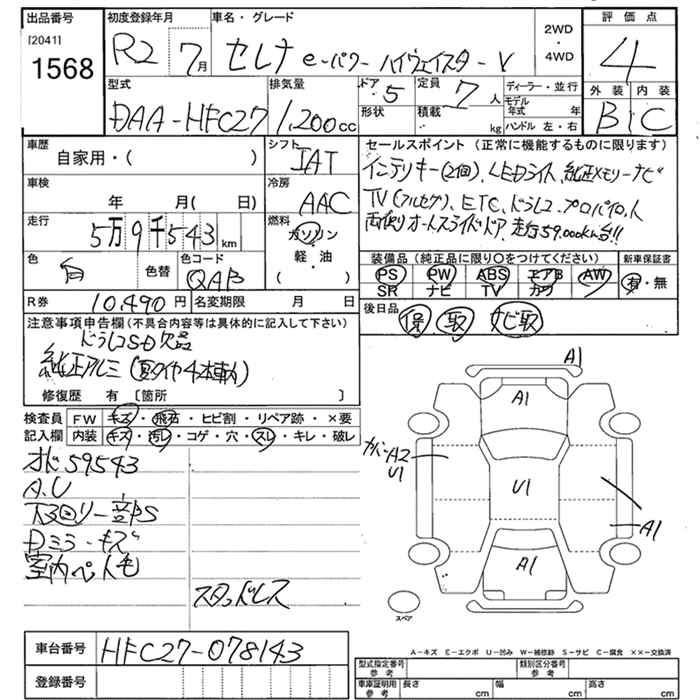 出品番号 初度登録年月 車名・グレード 評価点
[2041] 2WD・4WD
1568 R2 7月 セレナ e-パワー ハイウェイスター V 4
型式 排気量 ドア 5 定員 7人 ディーラー・並行 外装 内装
DAA-HFC27 1,200cc 形状 積載 kg モデル年式 年 ハンドル 左・右 B C
車歴 シフト セールスポイント (正常に機能するものに限ります)
自家用・( ) IAT インテリキー(2個)、LEDライト、純正メモリーナビ
車検 冷房 TV(フルセグ)、ETC、ドラレコ、プロパイロット
年 月( 日) AAC 両側オートスライドドア、走行59,000km台!!
走行 燃料
5万9千543km ガソリン・軽・油( )
装備品 (純正品に限り○をつけてください) 新車保証書
色 白 色替 色コード QAB PS PW ABS エアB AW 有・無
SR ナビ TV カワ
R券 10,490円 名変期限 月 日 後日品 保 取 ナビ取
注意事項申告欄 (不具合内容等は具体的に記入して下さい)
ドラレコSD欠品
純正アルミ(夏タイヤ4本車内)
修復歴 有 〔箇所 〕
検査員 FW キズ・飛石・ヒビ割・リペア跡・×要
記入欄 内装 キズ・汚レ・コゲ・穴・スレ・キレ・破レ
オド59543
A.U
下回り一部S
Dミラーキズ
室内ペット毛
スタッドレス
A1
A1
カバーA2
U1
U1
A1
A1
スペア
A-キズ E-エクボ U-凹み W-補修跡 S-サビ C-腐食 ××-交換済
車台番号 HFC27-078143
登録番号
型式指定番号 参考 類別区分番号 参考
車庫証明用 参考 長さ cm 幅 cm 高さ cm